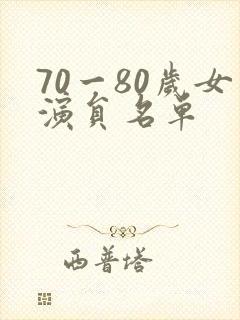 70一80歲女
演員名单
西普塔